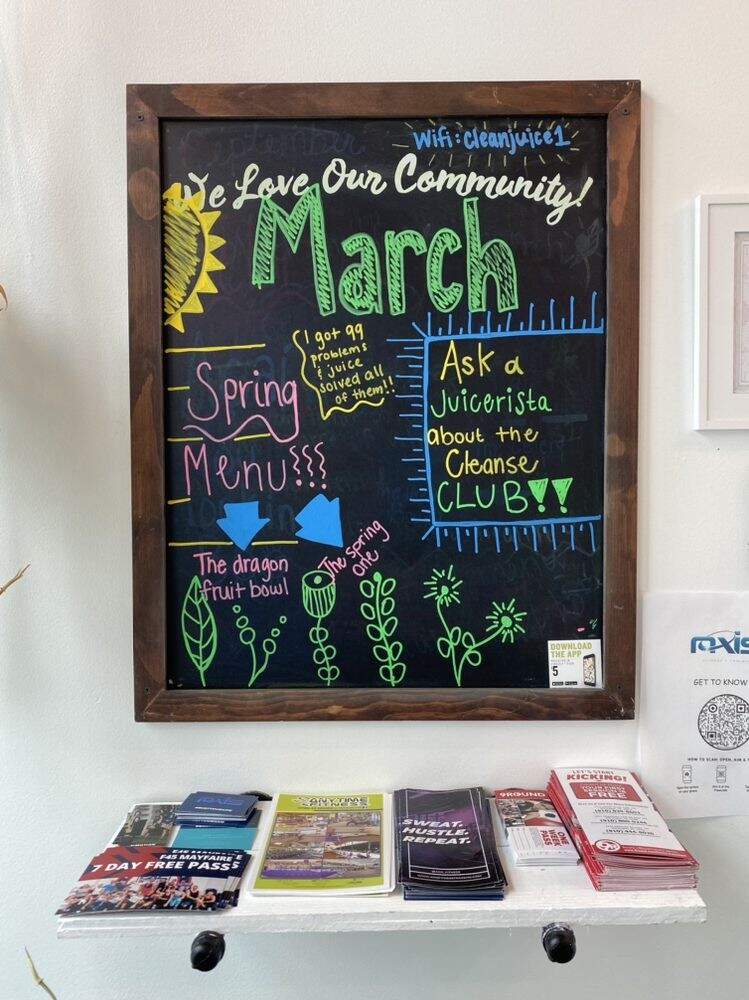 Wifi: cleanjuice1
We Love Our Community!
March
I got 99
problems
& juice
solved all
of them!!
Spring
Menu
Ask a
Juicerista
about the
Cleanse
CLUB!!
The dragon
fruit bowl
The spring
one
DOWNLOAD
THE APP
$5
GET TO KNOW
F45 MAYFAIRE
7 DAY FREE PASS
ANYTIME
FITNESS
SWEAT.
HUSTLE.
REPEAT.
9ROUND
ONE
WEEK
PASS
LET'S START
KICKING!
YOUR FIRST
FREE